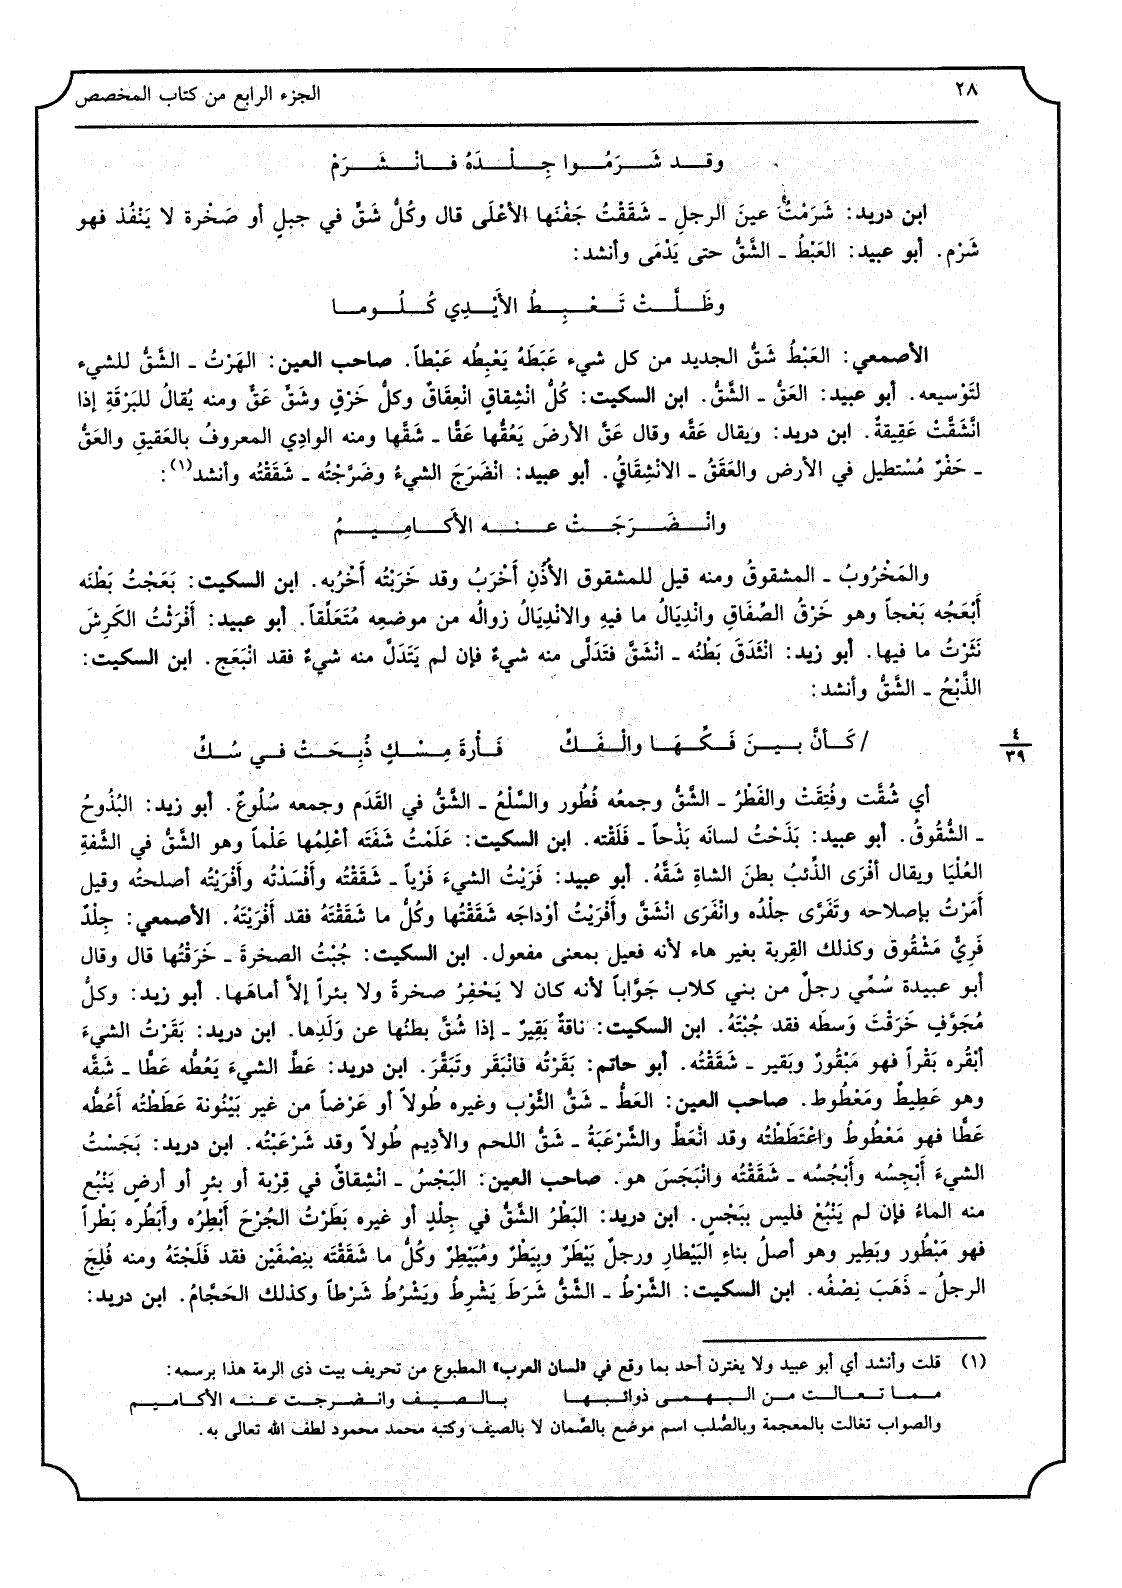 ٢٨
الجزء الرابع من كتاب المخصص
وقد شَرَمُوا جِلْدَهُ فانْشَرَمْ
ابن دريد: شَرَمْتُ عينَ الرجلِ ـ شَقَقْتُ جَفْنَها الأعْلَى قال وكُلُّ شَقٍّ في جبلٍ أو صَخْرة لا يَنْفُذ فهو
شَرْم. أبو عبيد: العَبْطُ ـ الشَّقُّ حتى يَدْمَى وأنشد:
وظَلَّتْ تَعْبِطُ الأَيْدِي كُلُوما
الأصمعي: العَبْطُ شَقُّ الجديد من كل شيء عَبَطَهُ يَعْبِطُه عَبْطاً. صاحب العين: الهَرْتُ ـ الشَّقُّ للشيء
لتَوْسيعه. أبو عبيد: العَقُّ ـ الشَّقُّ. ابن السكيت: كُلُّ انْشِقاقٍ انْعِقَاقٌ وكلُّ خَرْقٍ وشَقّ عَقٌّ ومنه يُقالُ للبَرْقَةِ إذا
انْشَقَّتْ عَقِيقةٌ. ابن دريد: ويقال عَقَّه وقال عَقَّ الأرضَ يَعُقُّها عَقًّا ـ شَقَّها ومنه الوادِي المعروفُ بالعَقيقِ والعَقُّ
ـ حَفْرٌ مُسْتطيل في الأرض والعَقَقُ ـ الانْشِقاقُ. أبو عبيد: انْضَرَجَ الشيءُ وضَرَّجْتُه ـ شَقَقْتُه وأنشد(١):
وانْضَرَجَتْ عنه الأَكامِيمُ
والمَخْرُوبُ ـ المشقوقُ ومنه قيل للمشقوق الأُذُنِ أَخْرَبُ وقد خَرَبْتُه أَخْرُبه. ابن السكيت: بَعَجْتُ بَطْنَه
أَبْعَجُه بَعْجاً وهو خَرْقُ الصِّفَاقِ وانْدِيَالُ ما فيهِ والانْدِيَالُ زوالُه من موضعِه مُتَعَلِّقاً. أبو عبيد: أَفْرَثْتُ الكَرِشَ
نَثَرْتُ ما فيها. أبو زيد: انْثَدَقَ بَطْنُه ـ انْشَقَّ فتَدَلَّى منه شيءٌ فإن لم يَتَدَلَّ منه شيءٌ فقد انْبَعَج. ابن السكيت:
الذَّبْحُ ـ الشَّقُّ وأنشد:
/ كَأنَّ بينَ فَكِّهَا والْفَكِّ فَأْرةَ مِسْكٍ ذُبِحَتْ في سُكِّ
٤
٣٩
أي شُقَّت وفُتِقَتْ والفَطْرُ ـ الشَّقُّ وجمعُه فُطُور والسَّلْعُ ـ الشَّقُّ في القَدَم وجمعه سُلُوعٌ. أبو زيد: البُذُوحُ
ـ الشُّقُوقُ. أبو عبيد: بَذَحْتُ لسانَه بَذْحاً ـ فَلَقْته. ابن السكيت: عَلَمْتُ شَفَتَه أعْلِمُها عَلْماً وهو الشَّقُّ في الشَّفةِ
العُلْيَا ويقال أفْرَى الذِّئبُ بطنَ الشاةِ شَقَّهُ. أبو عبيد: فَرَيْتُ الشيءَ فَرْياً ـ شَقَقْتُه وأَفْسَدْتُه وأفْرَيْتُه أصلحتُه وقيل
أَمَرْتُ بإصلاحه وتَفَرَّى جلدُه وانْفَرَى انْشَقَّ وأَفْرَيْتُ أوْداجَه شَقَقْتُها وكُلُّ ما شَقَقْتَهُ فقد أَفْرَيْتَهُ. الأصمعي: جِلْدٌ
فَرِيٌّ مَشْقُوق وكذلك القِربة بغير هاء لأنه فعيل بمعنى مفعول. ابن السكيت: جُبْتُ الصخرةَ ـ خَرَقْتُها قال وقال
أبو عبيدة سُمِّي رجلٌ من بني كلاب جَوَّاباً لأنه كان لا يَحْفِرُ صخرةً ولا بئراً إلاَّ أماهَها. أبو زيد: وكلُّ
مُجَوَّفٍ خَرَقْتَ وَسطَه فقد جُبْتَهُ. ابن السكيت: ناقةٌ بَقِيرٌ ـ إذا شُقَّ بطنُها عن وَلَدِها. ابن دريد: بَقَرْتُ الشيءَ
أبْقُره بَقْراً فهو مَبْقُورٌ وبَقير ـ شَقَقْتُه. أبو حاتم: بَقَرْتُه فانْبَقَر وتَبَقَّرَ. ابن دريد: عَطَّ الشيءَ يَعُطُّه عَطًّا ـ شَقَّه
وهو عَطِيطٌ ومَعْطُوط. صاحب العين: العَطُّ ـ شَقُّ الثَّوْب وغيره طُولاً أو عَرْضاً من غير بَيْنُونة عَطَطْتُه أَعُطُّه
عَطًّا فهو مَعْطُوطُ واعْتَطَطْتُه وقد انْعَطَّ والشَّرْعَبَةُ ـ شَقُّ اللحم والأدِيم طُولاً وقد شَرْعَبْتُه. ابن دريد: بَجَسْتُ
الشيءَ أَبْجِسُه وأَبْجُسُه ـ شَقَقْتُه وانْبَجَسَ هو. صاحب العين: البَجْسُ ـ انْشِقاقٌ في قِرْبة أو بئرٍ أو أرضٍ يَنْبُع
منه الماءُ فإن لم يَنْبُعْ فليس ببَجْسٍ. ابن دريد: البَطْرُ الشَّقُّ في جِلْدٍ أو غيره بَطَرْتُ الجُرْحَ أَبْطِرُه وأَبْطُره بَطْراً
فهو مَبْطُور وبَطِير وهو أصلُ بناءِ البَيْطارِ ورجلٌ بَيْطَرٌ وبِيَطْرٌ ومُبَيْطِرٌ وكُلُّ ما شَقَقْتَه بِنِصْفَيْن فقد فَلَجْتَهُ ومنه فُلِجَ
الرجلُ ـ ذَهَبَ نِصْفُه. ابن السكيت: الشَّرْطُ ـ الشَّقُّ شَرَطَ يَشْرِطُ ويَشْرُطُ شَرْطاً وكذلك الحَجَّامُ. ابن دريد:
(١) قلت وأنشد أي أبو عبيد ولا يغترن أحد بما وقع في «لسان العرب» المطبوع من تحريف بيت ذى الرمة هذا برسمه:
مما تعالت من البهمى ذوائبها بالصيف وانضرجت عنه الأكاميم
والصواب تغالت بالمعجمة وبالصُّلب اسم موضع بالصِّمان لا بالصيف وكتبه محمد محمود لطف الله تعالى به.